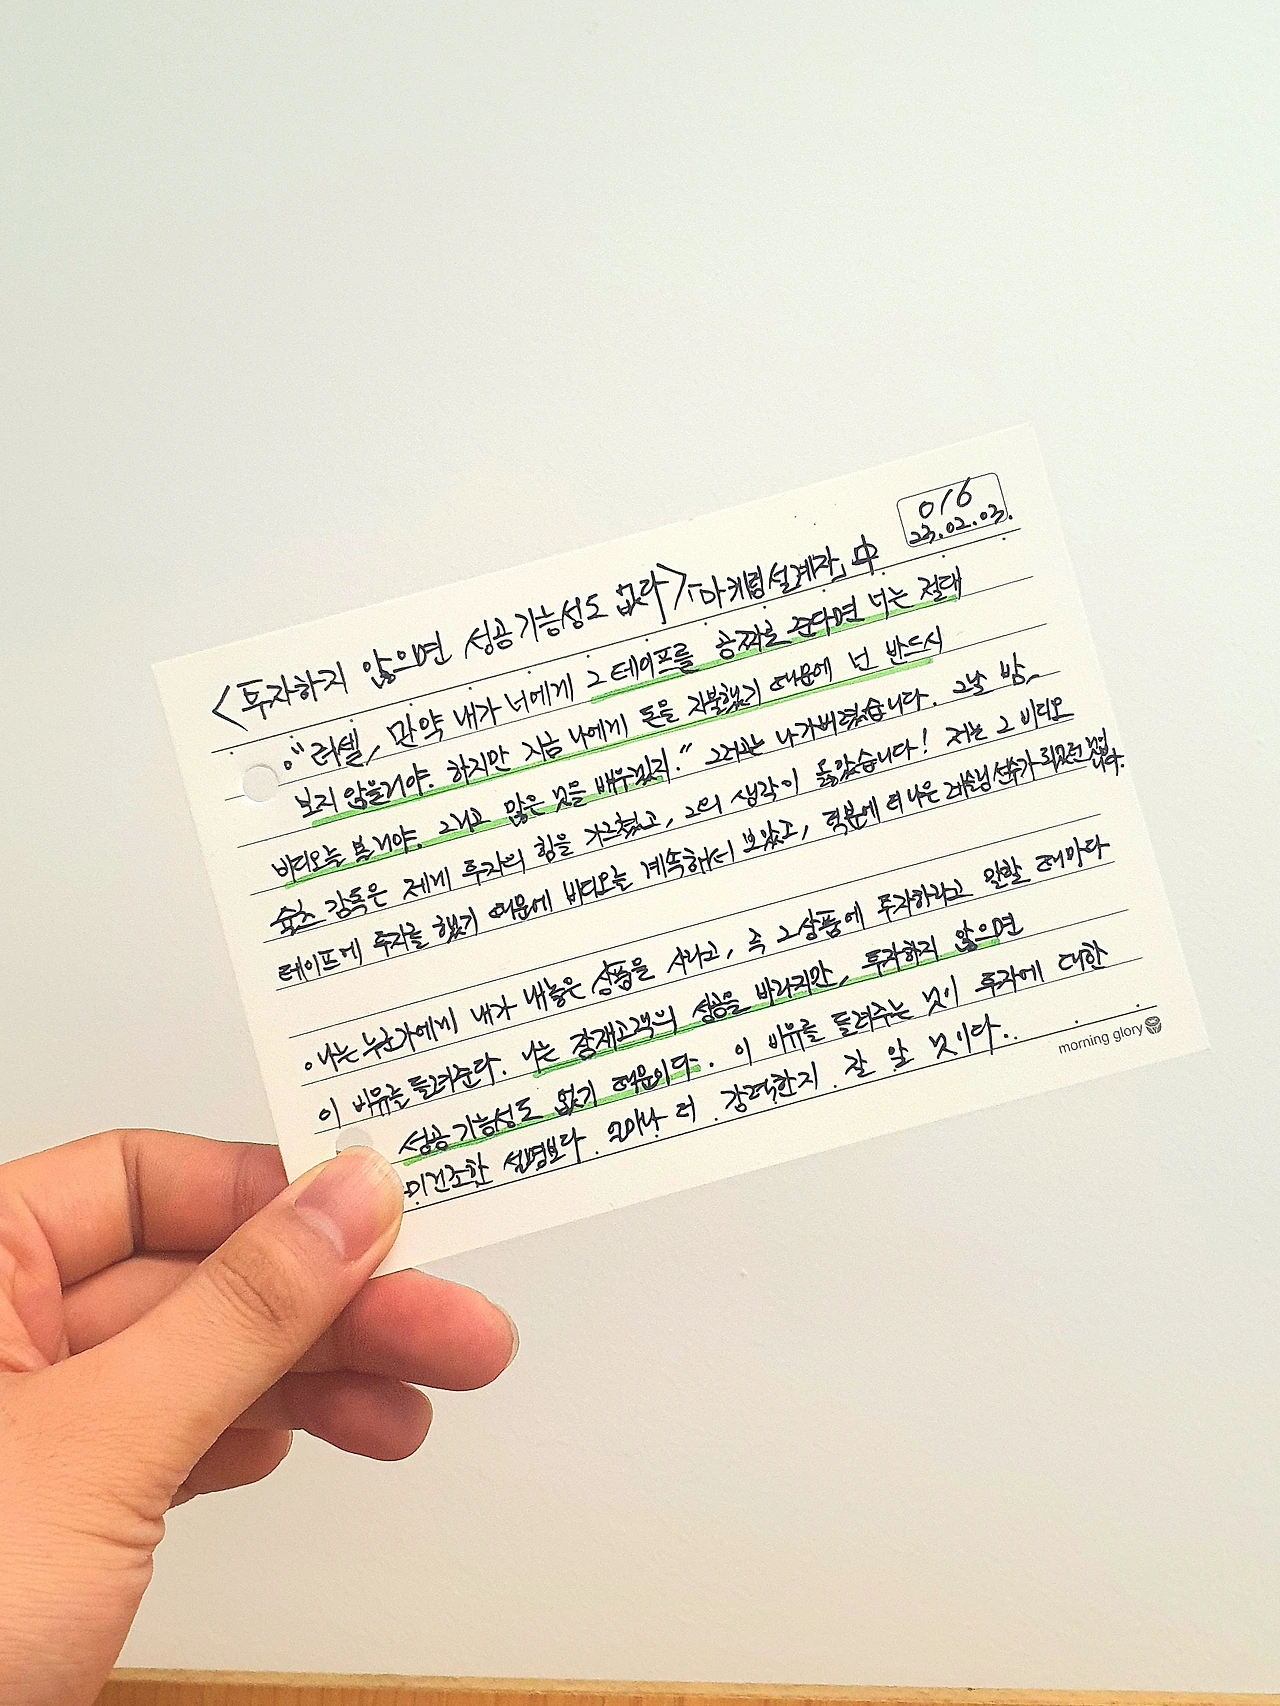 016
23.02.03.
<투자하지 않으면 성공가능성도 없다>『마케팅설계자』中
。"러셀, 만약 내가 너에게 그 테이프를 공짜로 준다면 너는 절대
보지 않을거야. 하지만 지금 나에게 돈을 지불했기 때문에 넌 반드시
비디오를 볼거야. 그리고 많은 것을 배우겠지." 그러고는 나가버렸습니다. 그날 밤,
숄츠 감독은 제게 투자의 힘을 가르쳤고, 그의 생각이 옳았습니다! 저는 그 비디오
테이프에 투자를 했기 때문에 비디오를 계속해서 보았고, 덕분에 더 나은 레슬링 선수가 되었던 것입니다.
。나는 누군가에게 내가 내놓은 상품을 사라고, 즉 그 상품에 투자하라고 말할 때마다
이 비유를 들려준다. 나는 잠재고객의 성공을 바라지만, 투자하지 않으면
성공가능성도 없기 때문이다. 이 비유를 들려주는 것이 투자에 대한
무미건조한 설명보다 얼마나 더 강력한지 잘 알 것이다..
morning glory